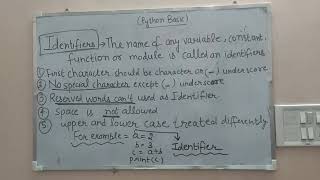 (Python Basic)
Identifiers → The name of any variable, constant,
function or module is called an identifiers
① First character should be character or (_) underscore
② No special character except (_) underscore
③ Reserved words can't used as Identifier
④ Space is not allowed
⑤ upper and lower case treated differently
For example = a = 2
b = 3
c = a+b
print(c)
Identifier